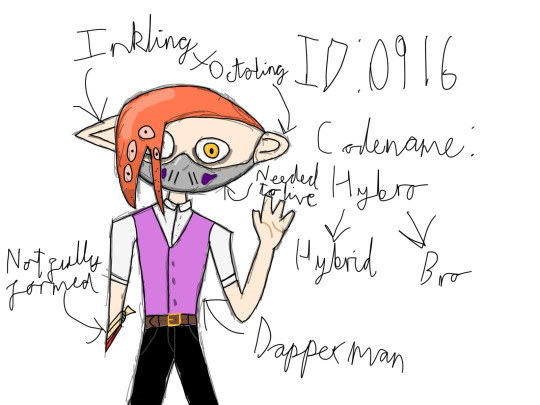 Inkling
x Octoling
ID:0916
Codename:
Hybro
Hybrid
Bro
Needed
to live
Not fully
formed
Dapper man